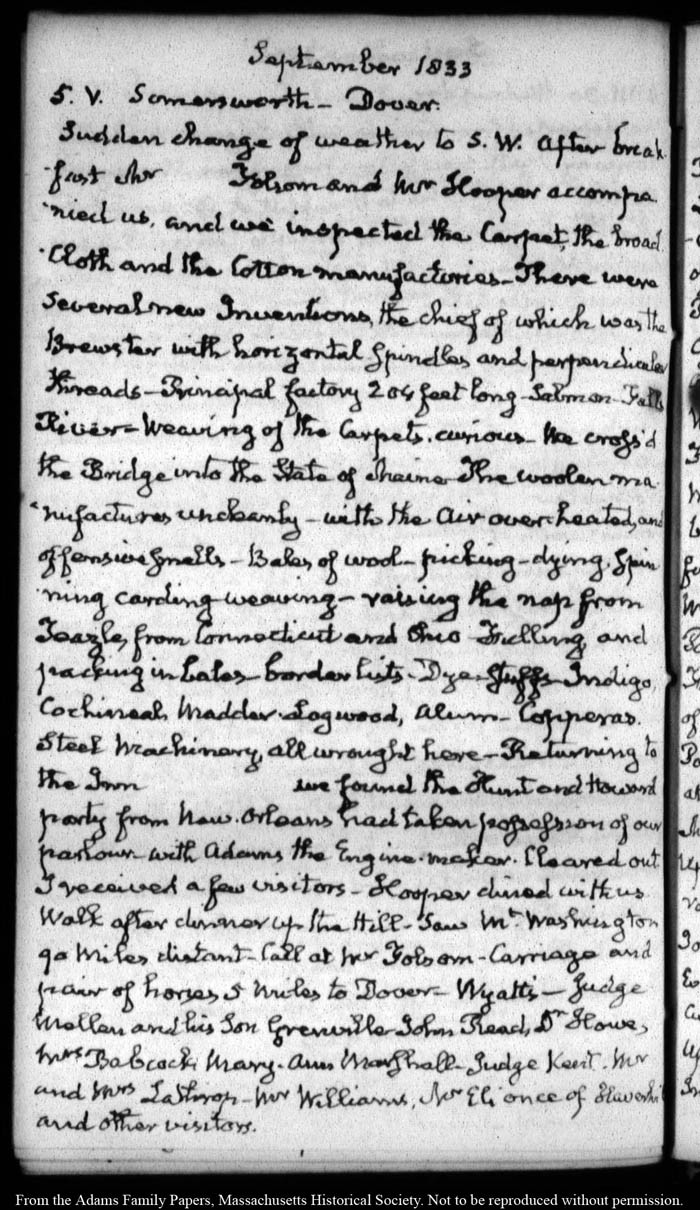 September 1833
5. V. Somersworth – Dover.
Sudden change of weather to S. W. After break
fast Mr Folsom and Mr Hooper accompa
nied us, and we inspected the Carpet, the broad
Cloth and the Cotton manufactories – There were
several new Inventions, the chief of which was the
Brewster with horizontal spindles and perpendicular
threads – Principal factory 204 feet long – Salmon Falls
River – Weaving of the Carpets curious – We cross'd
the Bridge into the State of Maine – The woolen ma
nufactures uncleanly – with the Air over-heated, and
offensive smells – Bales of wool – picking – dying, spin
ning carding weaving – raising the nap from
Teazle, from Connecticut and Ohio – Fulling, and
packing in bales – border lists – Dye-stuffs – Indigo,
Cochineal, Madder, Logwood, Alum – Copperas.
Steel Machinery, all wrought here – Returning to
the Inn we found the Hunt and Howard
party from New-Orleans had taken possession of our
parlour – with Adams the Engine-maker. Cleared out
I received a few visitors – Hooper dined with us
Walk after dinner up the Hill – Saw Mt. Washington
90 Miles distant – Call at Mr Folsom – Carriage and
pair of horses 5 Miles to Dover – Wyatt's – Judge
Mellen and his Son Grenville – John Read, Dr Howe,
Mrs Babcock, Mary-Ann Marshall – Judge Kent. Mr
and Mrs Lathrop – Mr Williams, Mr Eli once of
and other visitors.
From the Adams Family Papers, Massachusetts Historical Society. Not to be reproduced without permission.